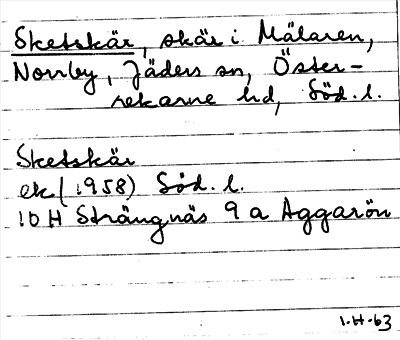 Sketskär, skär i Mälaren,
Norrby, Jäders sn, Öster-
rekarne hd, Söd. l.
Sketskär
ek (1958) Söd. l.
10 H Strängnäs 9 a Aggarön
1-H-63